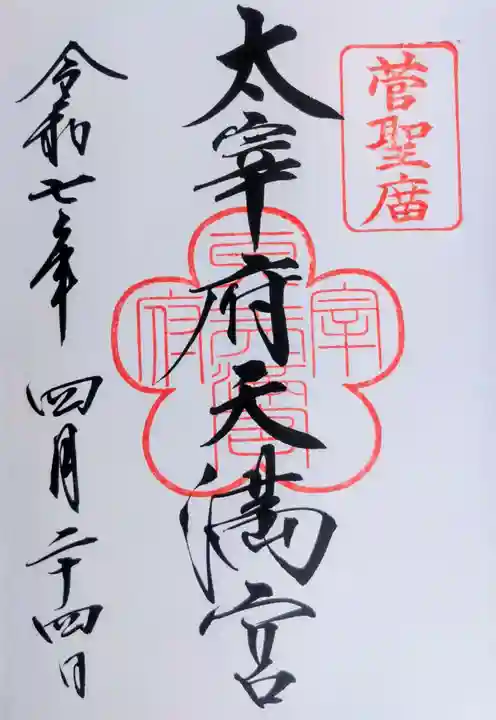 菅聖庿
太宰府天満宮
令和七年四月二十四日